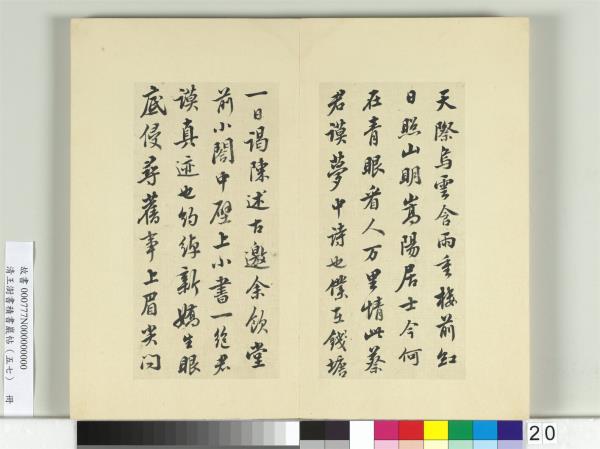 天際烏雲含雨重樓前紅
日照山明嵩陽居士今何
在青眼看人万里情此蔡
君謨夢中詩也僕在錢塘
一日謁陳述古邀余飲堂
前小閣中壁上小書一絕君
謨真迹也約綽新嬌生眼
底侵尋舊事上眉尖問
故書000777N000000000
清王澍書積書巖帖(五七) 冊
20